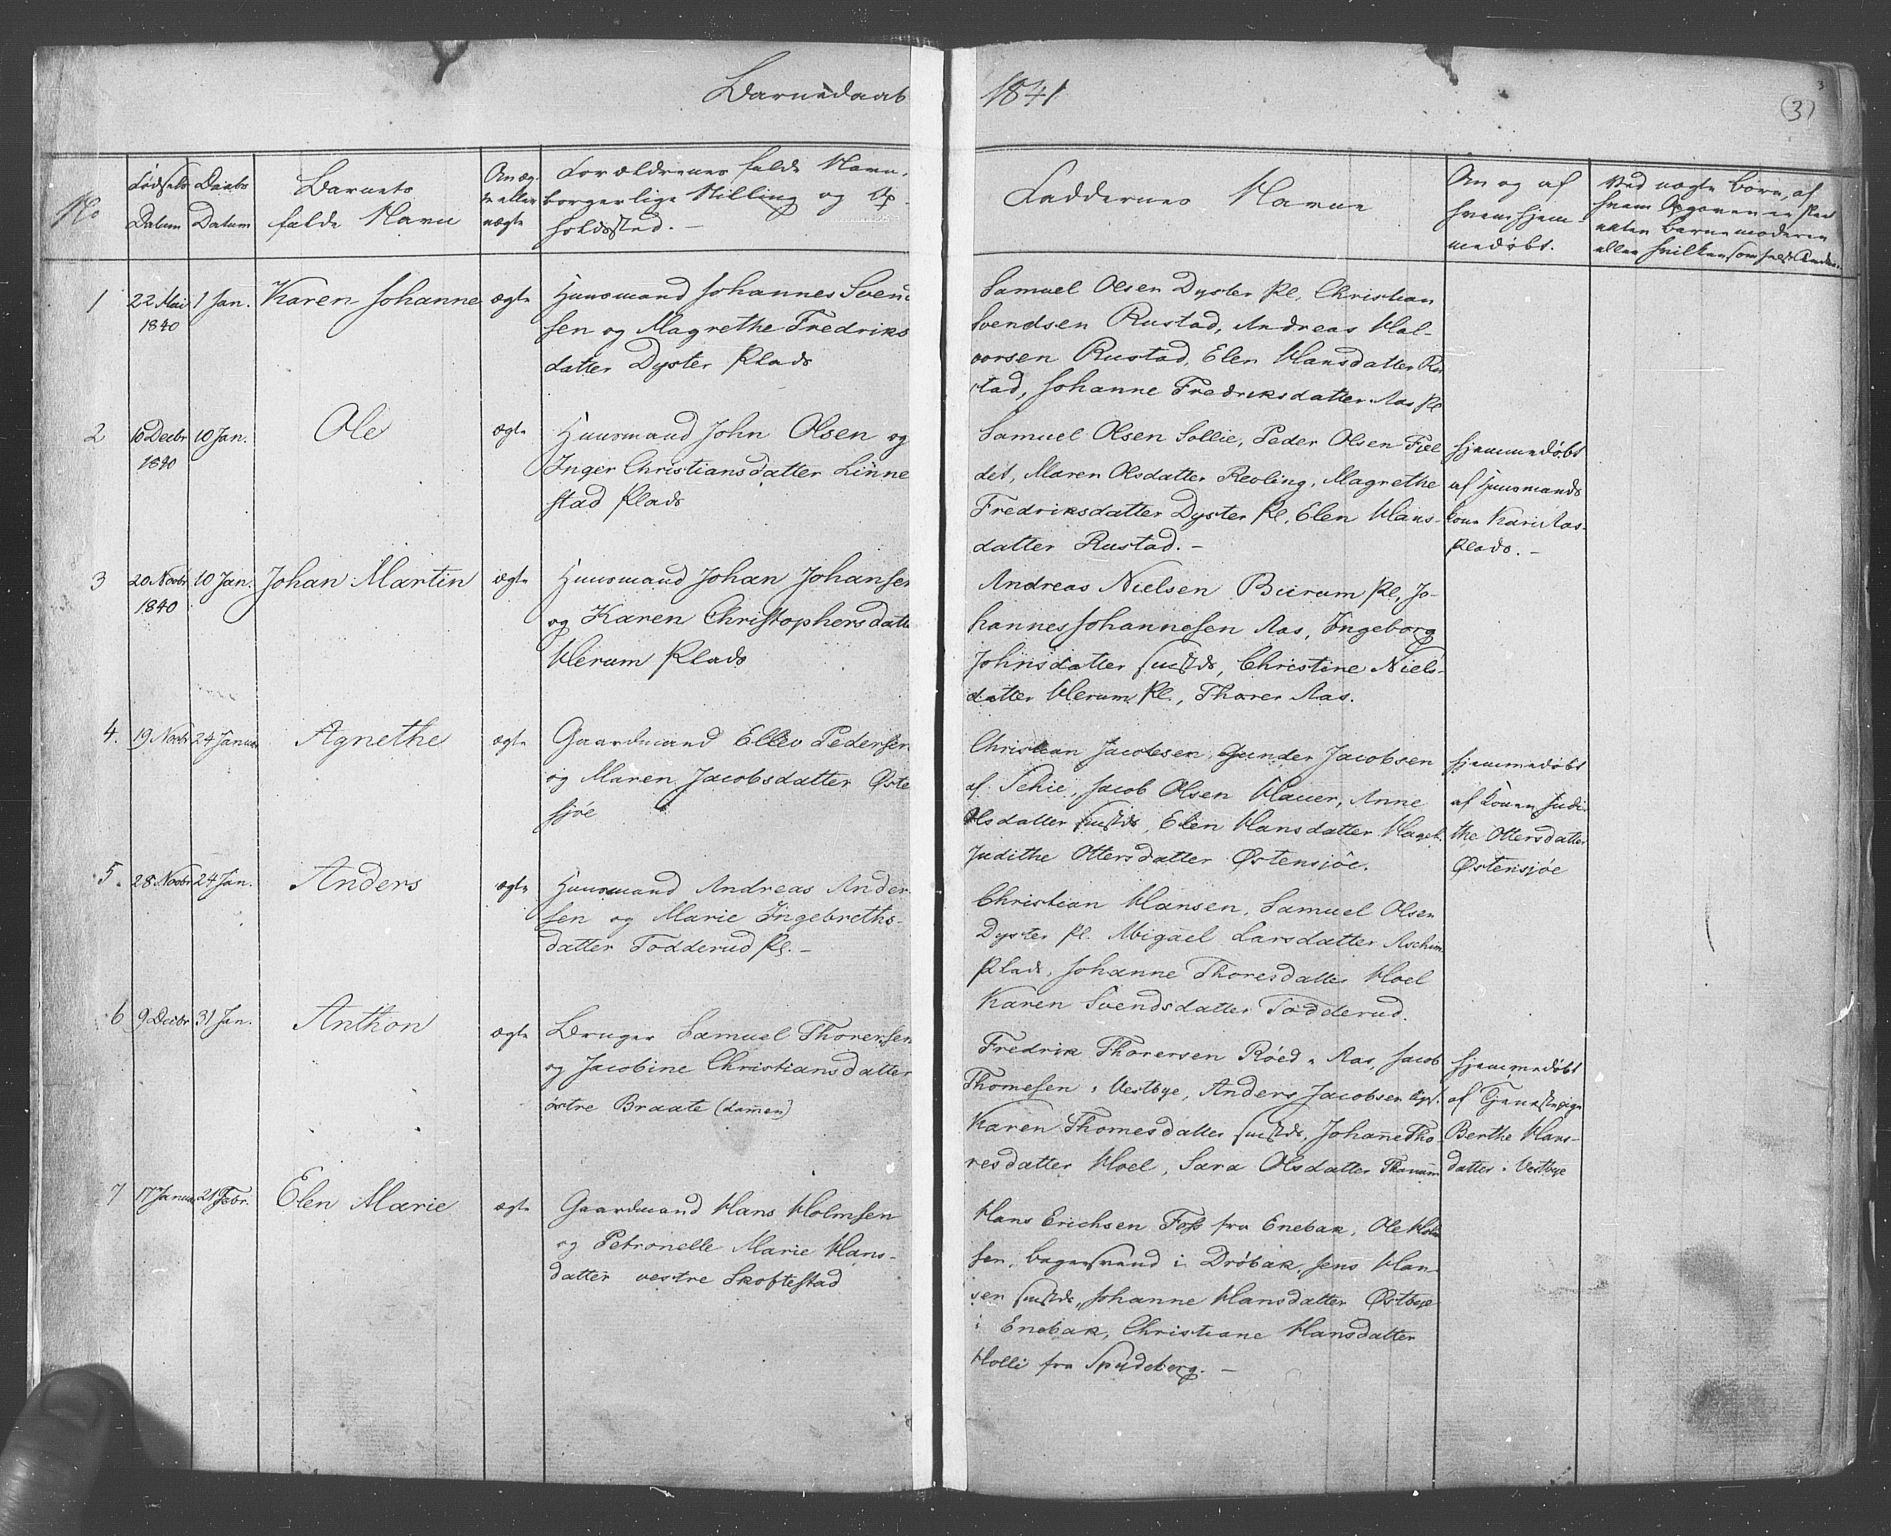 Barnedaab 1841
(3)
No
Fødsels Datum
Daabs Datum
Barnets fulde Navn
Om ægte eller uægte
Forældrenes fulde Navn, borgerlige Stilling og Opholdssted. —
Faddernes Navne
Om og af hvem hjemmedøbt.
Ved uægte Børn, af hvem Opgaven er
1
22 Mai 1840
1 Jan.
Karen Johanne
ægte
Huusmand Johannes Svend
sen og Magrethe Fredriks
datter Dyster Plads
Samuel Olsen Dyster Pl, Christian
Svendsen Rustad, Andreas Hal-
vorsen Rustad, Elen Hansdatter Ru
stad, Johanne Fredriksdatter Aas Pl
2
10 Decbr 1840
10 Jan.
Ole
ægte
Huusmand John Olsen og
Inger Christiansdatter Linne
stad Plads
Samuel Olsen Sollie, Peder Olsen Fiel
det, Maren Olsdatter Revling, Magrethe
Fredriksdatter Dyster Pl, Elen Hans-
datter Rustad. —
hjemmedøbt
af Huusmands
kone Kari Aas-
Plads. —
3
20 Novbr 1840
10 Jan.
Johan Martin
ægte
Huusmand Johan Johansen
og Karen Christophersdatte
Herum Plads
Andreas Nielsen Bierum Pl, Jo-
hannes Johannesen Aas, Ingeborg
Johnsdatter sustds, Christine Niels-
datter Herum Pl, Thorer Aas.
4.
19 Novbr
24 Januar
Agnethe
ægte
Gaardmand Ellev Pedersen
og Maren Jacobsdatter Øste
sjøe
Christian Jacobsen, Gunder Jacobsen
af Sekie, Jacob Olsen Hauer, Anne
Olsdatter sustds, Elen Hansdatter
Judithe Ottersdatter Østensjøe.
hjemmedøbt
af Konen Judi
the Ottersdatter
Østensjøe
5.
28 Novbr
24 Jan.
Anders
ægte
Huusmand Andreas Ander
sen og Marie Ingebreths-
datter Todderud Pl. —
Christian Hansen, Samuel Olsen
Dyster Pl. Abigael Larsdatter Aschim
Plads, Johanne Thoresdatter Hoel
Karen Svendsdatter Todderud.
6
9 Decbr
31 Jan.
Anthon
ægte
Bruger Samuel Thorersen
og Jacobine Christiansdatter
østre Braate (Lamen)
Fredrik Thorersen Røed i Aas, Jacob
Thomesen i Vestbye, Anders Jacobsen
Karen Thomesdatter sustds, Johanne Tho
resdatter Hoel, Sara Olsdatter
hjemmedøbt
af Tjenestepige
Berthe Hans-
datter i Vestbye
7
17 Januar
21 Febr.
Elen Marie
ægte
Gaardmand Hans Holmsen
og Petronelle Marie Hans-
datter vestre Skoftestad
Hans Erichsen Foss fra Enebak, Ole Holm
sen, Bagersvend i Drøbak, Jens Han
sen sustds, Johanne Hansdatter Østbye
i Enebak, Christiane Hansdatter
Holli fra Spydeberg. —